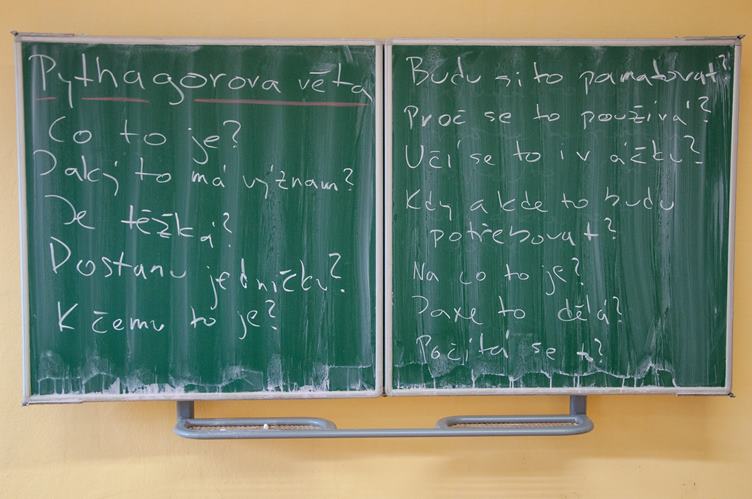 Pythagorova věta
Co to je?
Jaký to má význam?
Je těžká?
Dostanu jedničku?
K čemu to je?
Budu si to pamatovat?
Proč se to používá?
Učí se to i v áčku?
Kdy a kde to budu
potřebovat?
Na co to je?
to dělá?
Počítá se